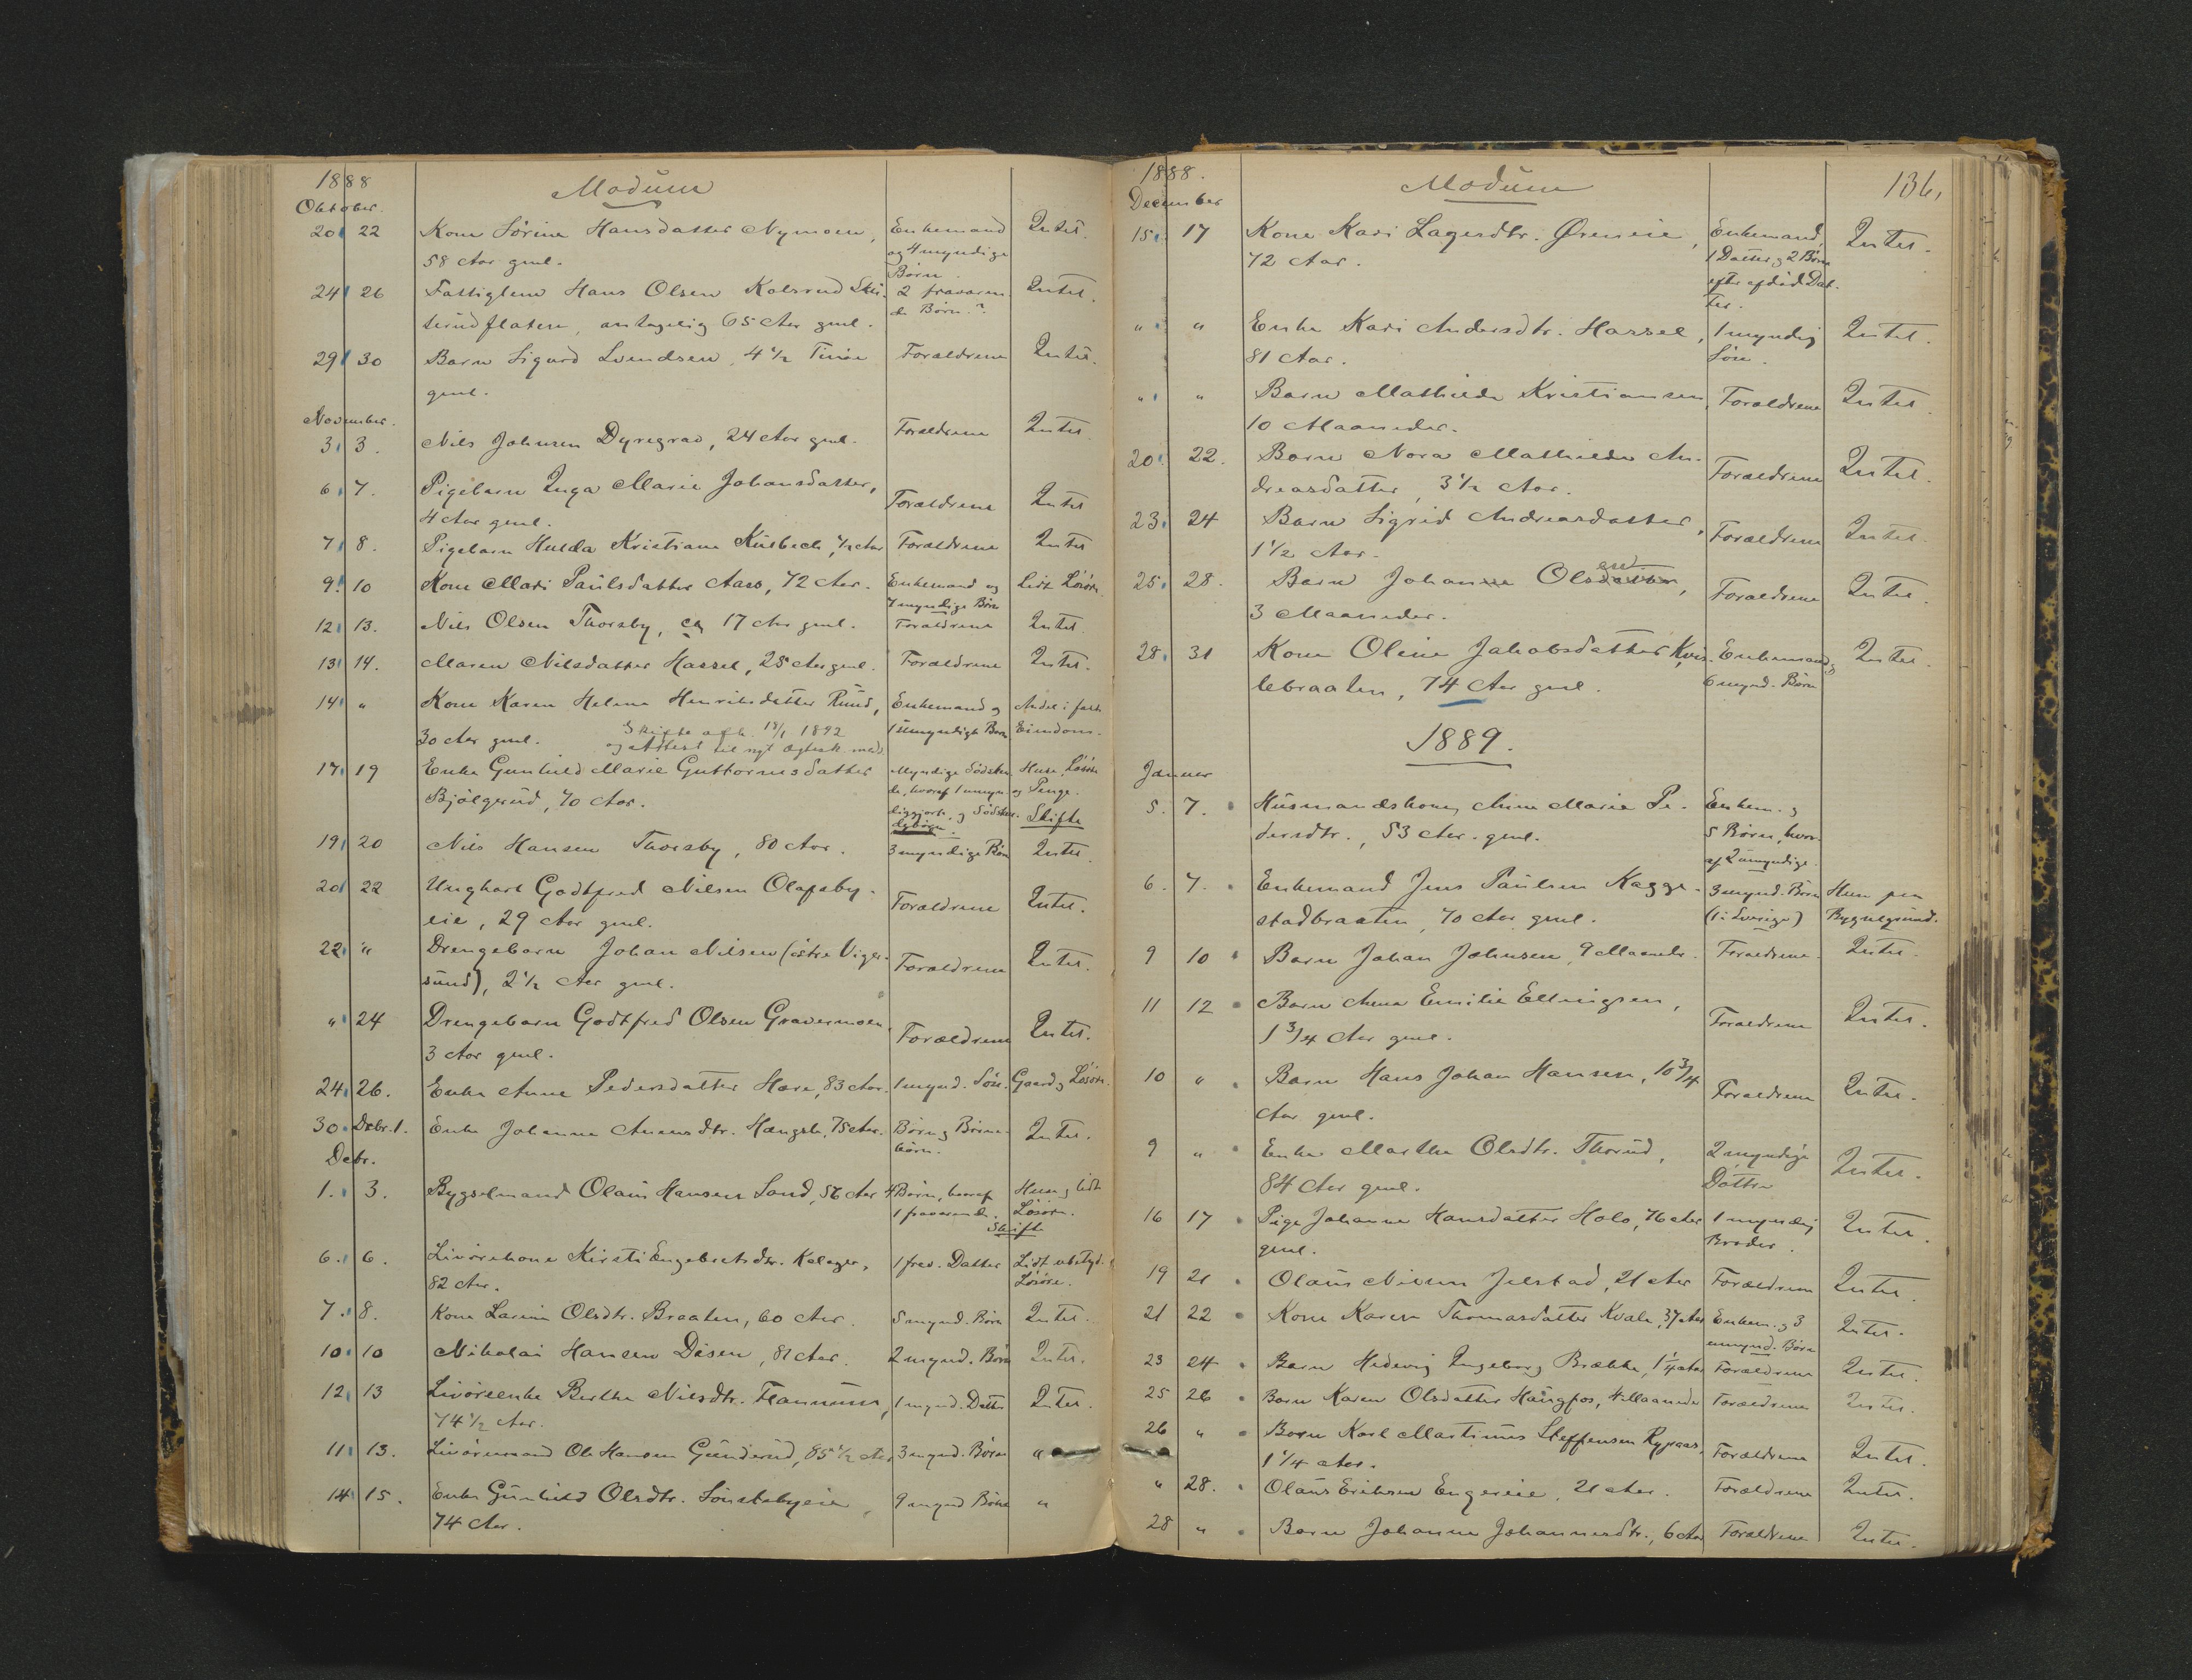 1888
Modum
Oktober.
20 22 Kone Sørine Hansdatter Nymoen, Enkemand Intet.
58 Aar gml. og 4 myndige
Børn.
24 26 Fattiglem Hans Olsen Kolsrud 2 fraværen- Intet.
terudflaten, antagelig 65 Aar gml. de Børn.?
29 30 Barn Sigurd Svendsen, 4 1/2 Time Forældrene Intet.
gml.
November.
3 3. Nils Johnsen Dyregrav, 24 Aar gml. Forældrene Intet.
6 7. Pigebarn Inga Marie Johansdatter, Forældrene Intet
4 Aar gml.
7 8. Pigebarn Hulda Kristiane Kulbech, 1/2 Aar Forældrene Intet
9. 10 Kone Mari Paulsdatter Aas, 72 Aar. Enkemand og Lidt Løsøre.
7 myndige Børn
12 13. Nils Olsen Thorsby, ca 17 Aar gml. Forældrene Intet.
13 14. Maren Nilsdatter Hassel, 25 Aar gml. Forældrene Intet.
14 " Kone Karen Helene Henriksdatter Ruud, Enkemand og Andel i fast
30 Aar gml. Skifte afh. 18/1 1892 1 umyndigt Barn Eiendom.
og Attest til nyt Ægtesk. med
17. 19 Enke Gunhild Marie Guttormsdatter Myndige Södsken- Huse, Løsøre
de, hvoraf 1 umyn- og Penge.
Bjølgerud, 70 Aar. diggjort, og Södsken- Skifte
debørn.
19 20 Nils Hansen Thorsby, 80 Aar. 3 myndige Børn Intet.
20 22 Ungkarl Godtfred Nilsen Olafsby- Forældrene Intet.
eie, 29 Aar gml.
22. " Drengebarn Johan Nilsen (østre Viger- Forældrene Intet.
sund), 2 1/2 Aar gml.
" 24 Drengebarn Godtfred Olsen Gravermoen, Forældrene Intet.
3 Aar gml.
24. 26. Enke Anne Pedersdatter Hære, 83 Aar. 1 mynd. Søn. Gaard og Løsøre.
30. Dcbr. 1. Enke Johanne Amundsdtr. Hængsle, 75 Aar. Børn og Børne- Intet.
børn.
Dcbr.
1. 3. Bygselmand Olaus Hansen Sand, 56 Aar 4 Børn, hvoraf Huse og lidt
1 fraværende. Løsøre.
Skifte
6. 6. Livørekone Kirsti Engebretsdtr. Kalager, 1 frav. Datter Lidt ubetyd.
82 Aar. Løsøre.
7. 8. Kone Larine Olsdtr. Braaten, 60 Aar. 5 mynd. Børn Intet.
10. 10 Nikolai Hansen Disen, 81 Aar. 2 mynd. Børn Intet.
12. 13 Livøreenke Berthe Nilsdtr. Flannum, 1 mynd. Datter Intet.
74 1/2 Aar.
11 13. Livøremand Ole Hansen Gunderud, 85 1/2 Aar 3 mynd. Børn "
14 15. Enke Gunhild Olsdtr. Sønstebyeie, 9 mynd Børn "
74 Aar.
1888.
Modum
136.
December
15. 17 Kone Kari Lagesdtr. Øreneie, Enkemand, Intet.
72 Aar. 1 Datter og 2 Børn
efter afdöd Dat-
ter.
" " Enke Kari Andersdtr. Hassel, 1 myndig Intet.
81 Aar. Søn.
" " Barn Mathilde Kristiansen, Forældrene Intet.
10 Maaneder.
20. 22. Barn Nora Mathilde An- Forældrene Intet.
dreasdatter, 3 1/2 Aar.
23. 24 Barn Sigrid Andreasdatter, Forældrene Intet.
1 1/2 Aar.
sen
25. 28. Barn Johanne Olsdatter, Forældrene Intet.
3 Maaneder.
28. 31 Kone Oline Jakobsdatter Kvis- Enkemand og Intet.
lebraaten, 74 Aar gml. 6 mynd. Børn
1889.
Januar
5. 7. Husmandskone Anne Marie Pe- Enkem. og
dersdtr., 53 Aar gml. 5 Børn, hvor-
af 2 umyndige.
6. 7. Enkemand Jens Paulsen Kagge- 3 mynd. Børn Huse paa
stadbraaten, 70 Aar gml. (1 i Sverige) Bygselgrund.
9 10 Barn Johan Johnsen, 9 Maaneder. Forældrene. Intet.
11 12 Barn Anna Emilie Ellingsen, Forældrene Intet.
1 3/4 Aar gml.
10 " Barn Hans Johan Hansen, 10 3/4 Forældrene Intet.
Aar gml.
9 " Enke Marthe Olsdtr. Thorud, 2 myndige Intet.
84 Aar gml. Døttre
16 17 Pige Johanne Hansdatter Holo, 76 Aar 1 myndig Intet.
gml. Broder.
19 21 Olaus Nilsen Jelstad, 21 Aar Forældrene Intet.
21 22 Kone Karen Thomasdatter Kvale, 37 Aar Enkem. og 3 Intet.
umynd. Børn
23 24 Barn Hedevig Ingeborg Brække, 1 1/4 Aar Forældrene Intet.
25 26 Barn Karen Olsdatter Haugfos, 4 Maaneder Forældrene Intet.
26 " Barn Karl Martinus Steffensen Rypaas, Forældrene Intet.
1 1/4 Aar.
" 28. Olaus Eriksen Engereie, 21 Aar. Forældrene Intet.
28 " Barn Johanne Johannesdtr., 6 Aar Forældrene Intet.